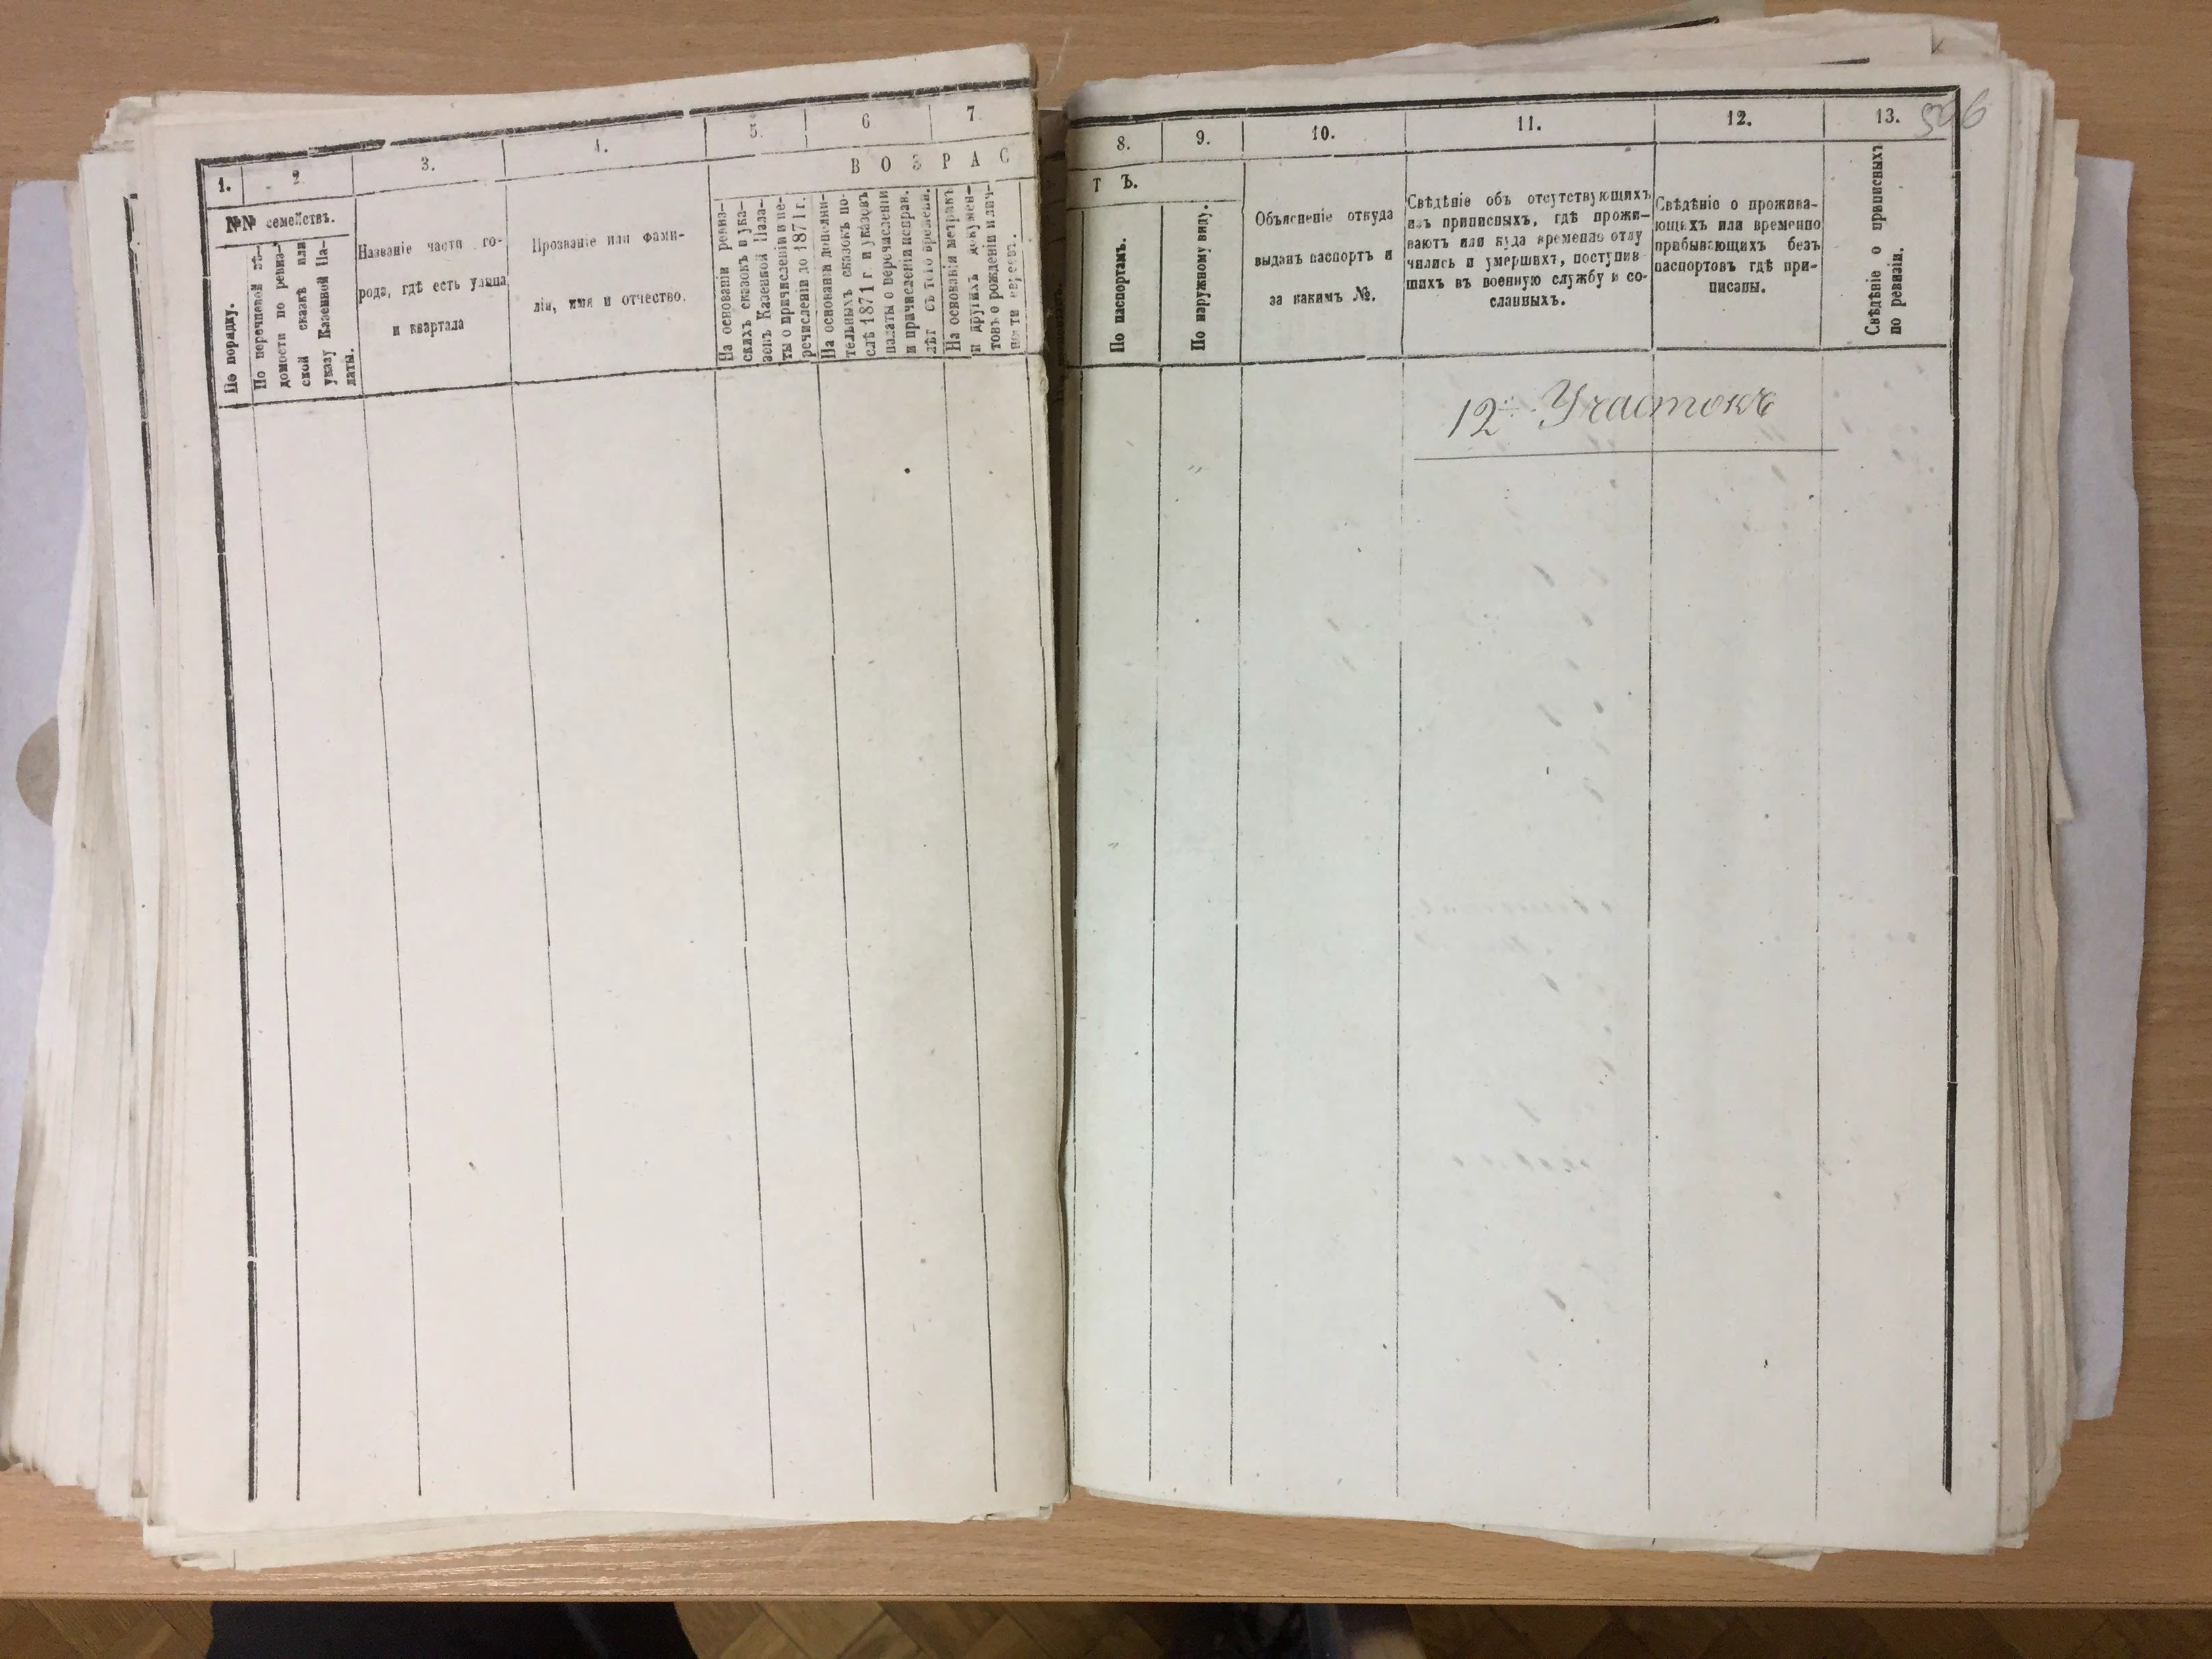 1.
2.
3.
4.
5.
6
7.
В О З Р А С
№№ семействъ.
По порядку.
По перечневой вѣ-
домости по ревиз-
ской сказкѣ или
указу Казенной Па-
латы.
Названіе части го-
рода, гдѣ есть улица
и квартала
Прозваніе или фами-
лія, имя и отчество.
На основаніи ревиз-
скихъ сказокъ и ука-
зовъ Казенной Пала-
ты о причисленіи и пе-
речисленіи до 1871 г.
На основаніи дополни-
тельныхъ сказокъ по-
слѣ 1871 г. и указовъ
палаты о перечисленіи
и причисленіи исправ.
лѣт съ того времени.
На основаніи метрикъ
и другихъ докумен-
товъ о рожденіи и лич-
ности евреевъ.
8.
9.
10.
11.
12.
13.
Т Ъ.
По паспортамъ.
По наружному виду.
Объясненіе откуда
выданъ паспортъ и
за какимъ №.
Свѣдѣніе объ отсутствующихъ
изъ приписныхъ, гдѣ прожи-
ваютъ или куда временно отлу
чились и умершихъ, поступив-
шихъ въ военную службу и со-
сланныхъ.
Свѣдѣніе о прожива-
ющихъ или временно
прибывающихъ безъ
паспортовъ гдѣ при-
писаны.
Свѣдѣніе о приписныхъ
по ревизіи.
12й Участокъ